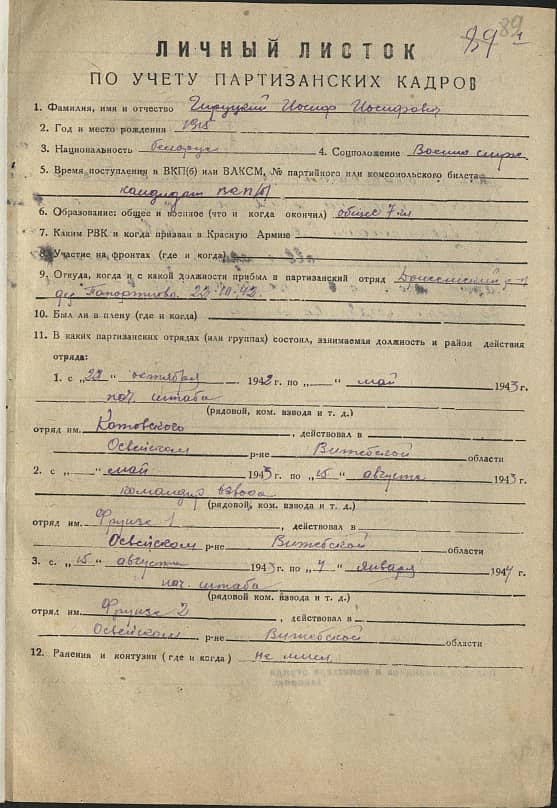 89
89
ЛИЧНЫЙ ЛИСТОК
ПО УЧЕТУ ПАРТИЗАНСКИХ КАДРОВ
1. Фамилия, имя и отчество Гируцкий Иосиф Иосифович
2. Год и место рождения 1915
3. Национальность белорус 4. Соцположение Военно служ.
5. Время поступления в ВКП(б) или ВЛКСМ, № партийного или комсомольского билета
кандидат ВКП(б)
6. Образование: общее и военное (что и когда окончил) общее 7 кл
7. Каким РВК и когда призван в Красную Армию
8. Участие на фронтах (где и когда)
9. Откуда, когда и с какой должности прибыл в партизанский отряд
дер 22.10.42.
10. Был ли в плену (где и когда)
11. В каких партизанских отрядах (или группах) состоял, занимаемая должность и район действия
отряда:
1. с „22" октября 1942 г. по „ " май 1943 г.
нач. штаба
(рядовой, ком. взвода и т. д.)
отряд им. Котовского, действовал в
Освейском р-не Витебской области
2. с „ " май 1943 г. по „15" августа 1943 г.
командир взвода
(рядовой, ком. взвода и т. д.)
отряд им. Фрунзе 1, действовал в
Освейском р-не Витебской области
3. с. „15" августа 1943 г. по „7" января 1944 г.
нач. штаба
(рядовой ком. взвода и т. д.)
отряд им. Фрунзе 2, действовал в
Освейском р-не Витебской области
12. Ранения и контузии (где и когда) не имел